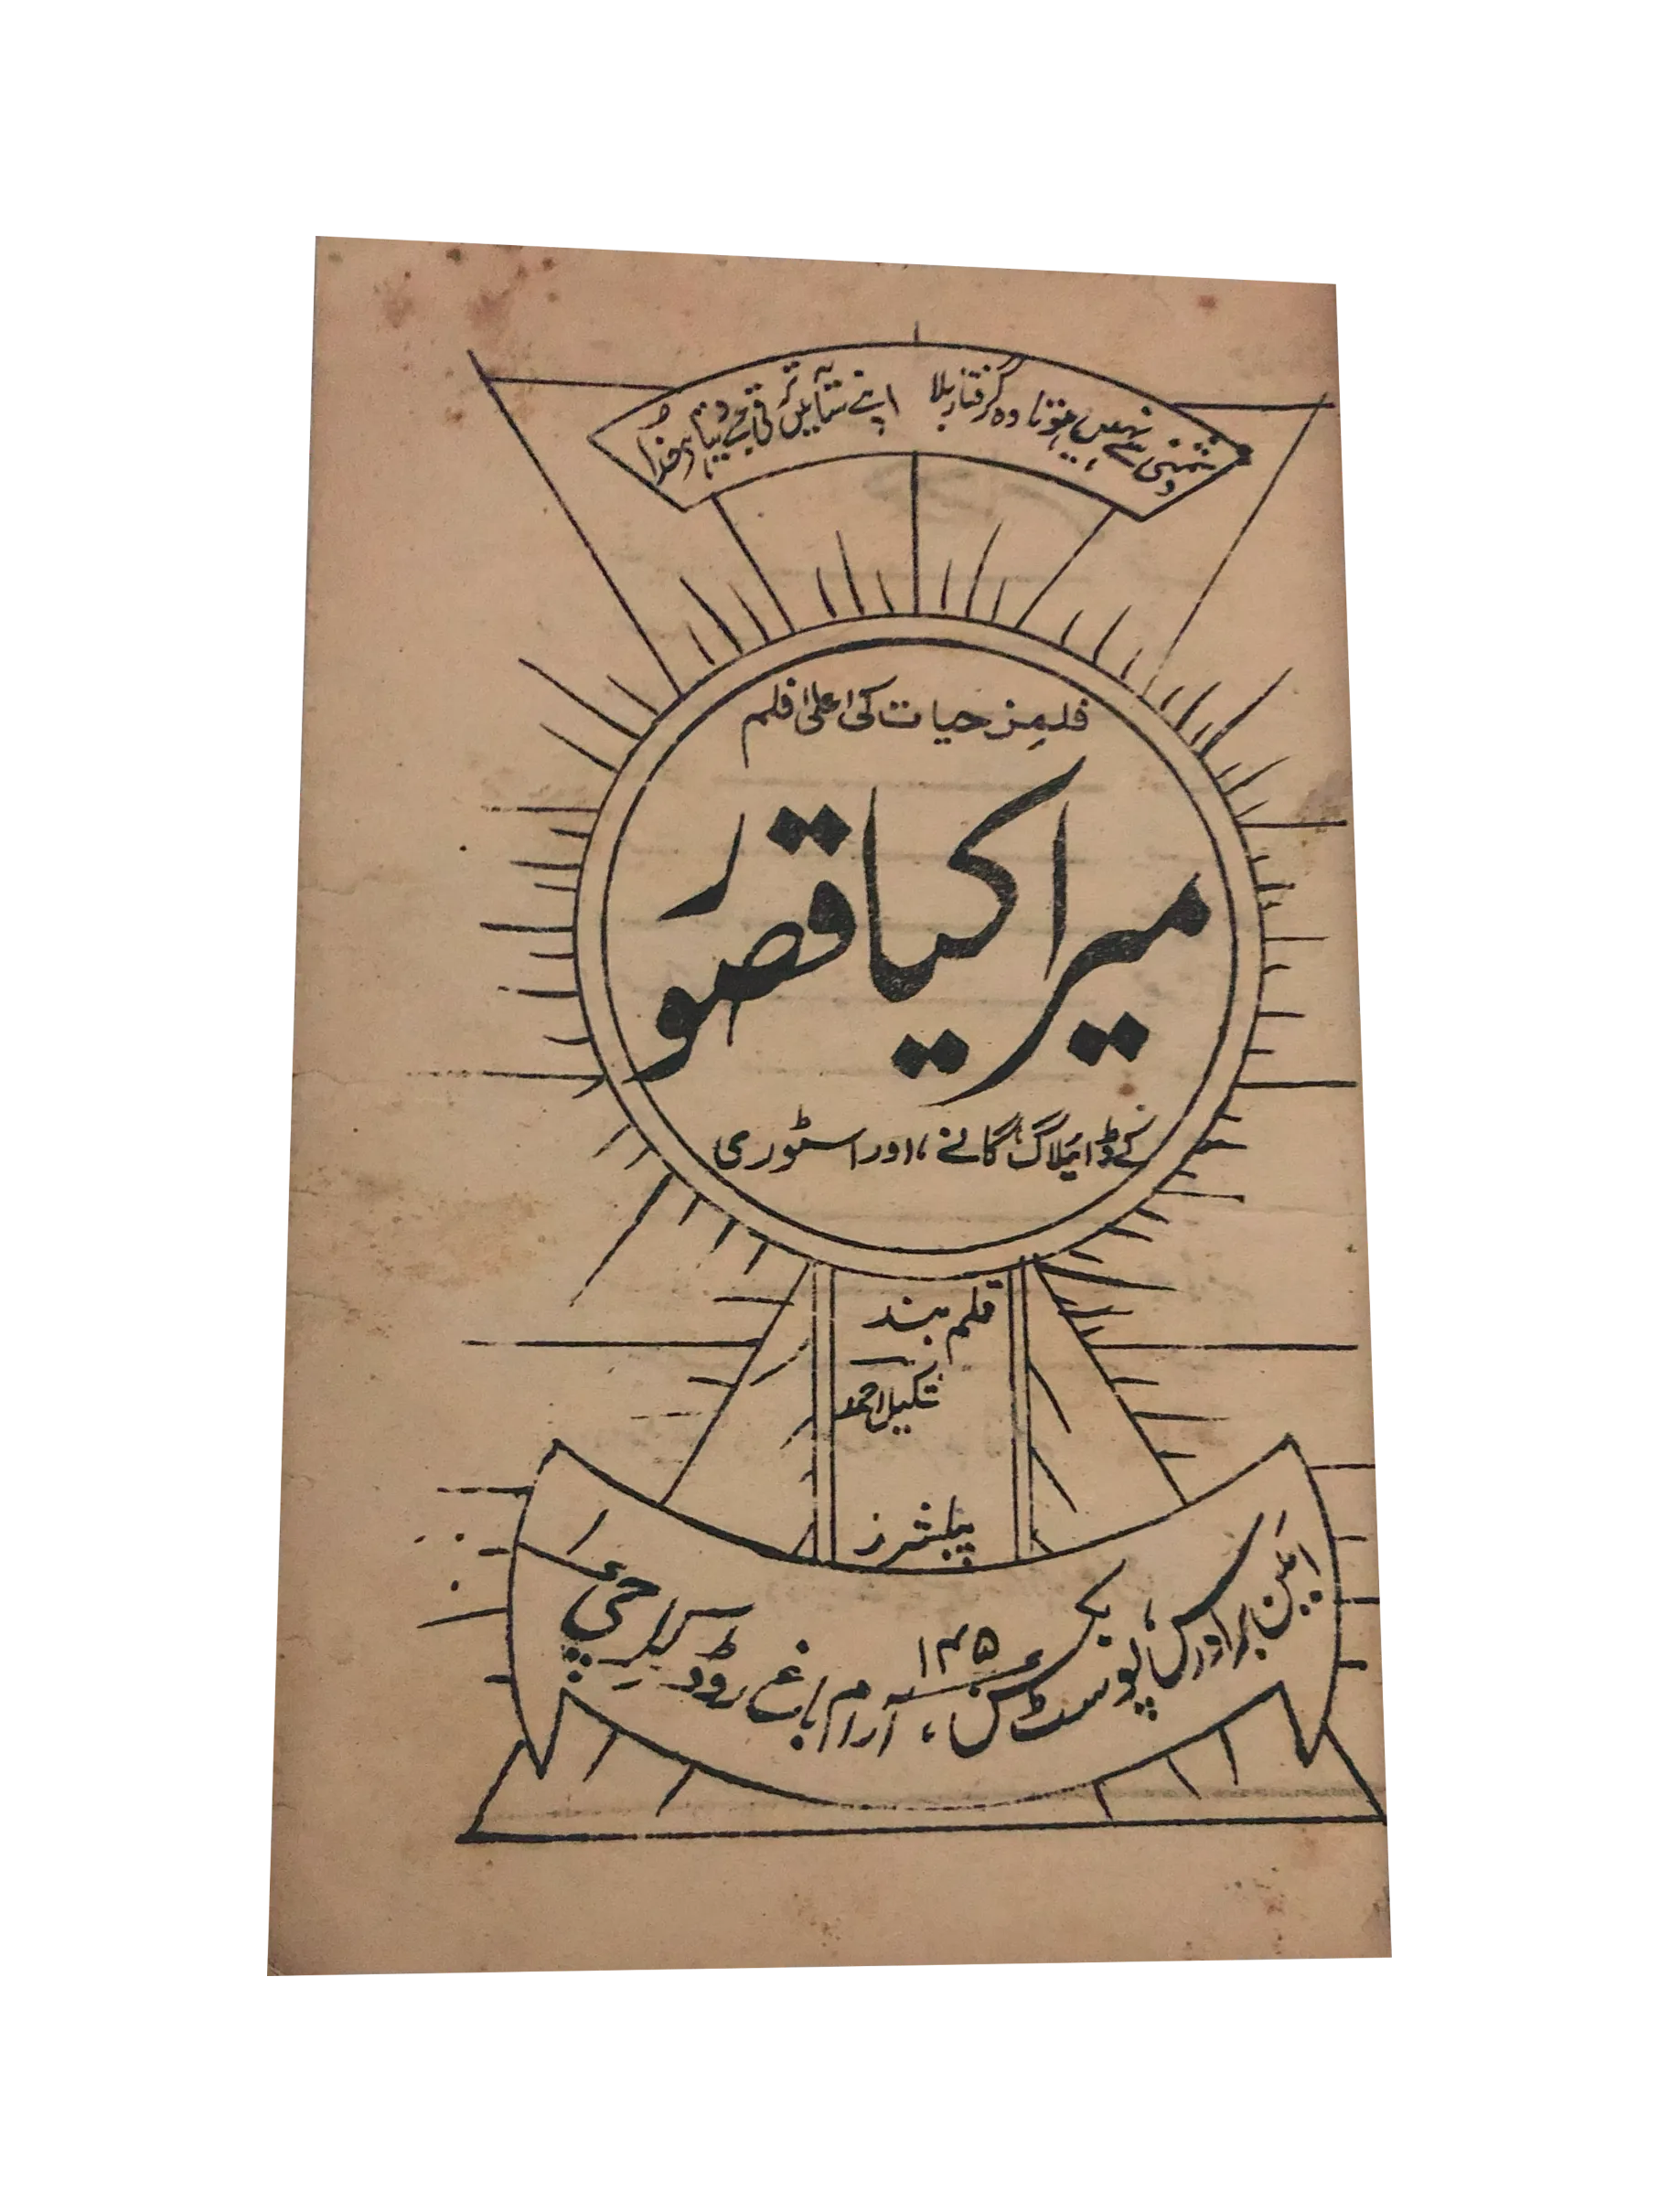 دشمنی سے نہیں ہوتا وہ گرفتار بلا اپنے سائے میں
فلمز حیات کی اعلیٰ فلم
میرا کیا قصور
کے ڈائیلاگ، گانے، اور اسٹوری
قلم بند
شکیل احمد
پبلشرز
امین برادرس، پوسٹ بکس ۱۴۵، آرام باغ روڈ کراچی ۱